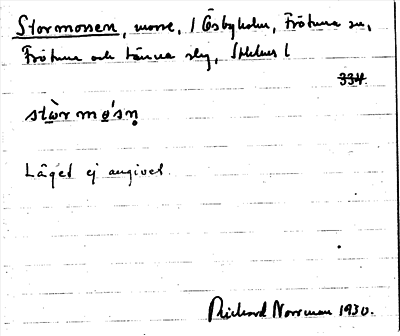 Stormossen, mosse, iÖsbyholm, Frötuna sn,
Frötuna och Länna slg, Sthlms l
334
stò̠r mó̠sn̥
Läget ej angivet.
Richard Norrman 1930.